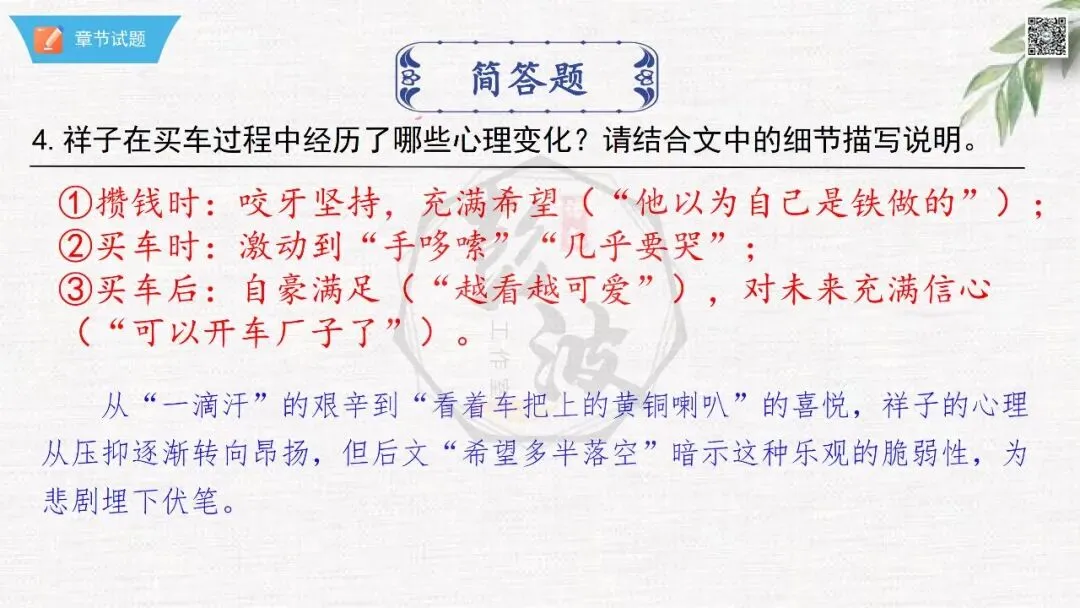 章节试题
简答题
4. 祥子在买车过程中经历了哪些心理变化？请结合文中的细节描写说明。
①攒钱时：咬牙坚持，充满希望（“他以为自己是铁做的”）；
②买车时：激动到“手哆嗦”“几乎要哭”；
③买车后：自豪满足（“越看越可爱”），对未来充满信心
（“可以开车厂子了”）。
从“一滴汗”的艰辛到“看着车把上的黄铜喇叭”的喜悦，祥子的心理
从压抑逐渐转向昂扬，但后文“希望多半落空”暗示这种乐观的脆弱性，为
悲剧埋下伏笔。
波
工作室